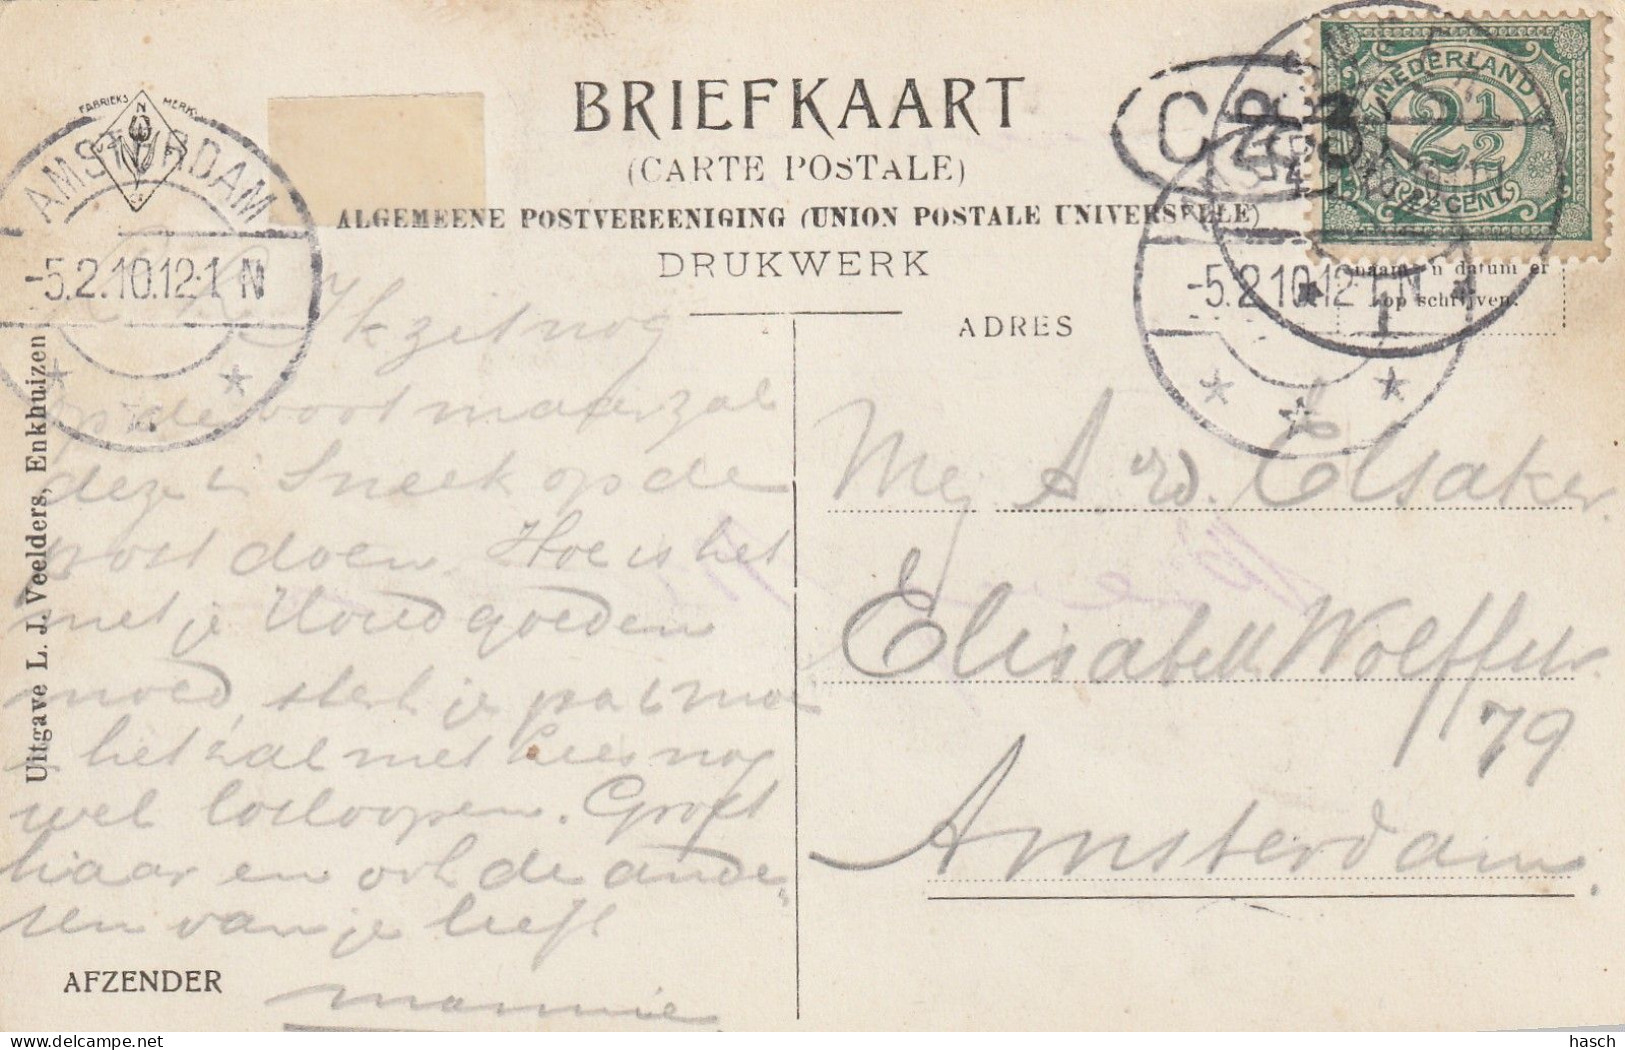 BRIEFKAART
(CARTE POSTALE)
ALGEMEENE POSTVEREENIGING (UNION POSTALE UNIVERSELLE)
DRUKWERK
FABRIEKS MERK
AMSTERDAM
-5.2.10.12-1 N
NEDERLAND
2½
CENT
-5.2.10.12-1 N
naam 'n datum er
op schrijven.
ADRES
Uitgave L. J. Veelders, Enkhuizen
Ik zit nog
op de boot maar zal
deze in Sneek op de
post doen. Hoe is het
met je voed goeden
moed, sterk je
het zal met nog
wel losloopen. Groet
haar en ook de ande-
ren van je liefh
mannie
AFZENDER
Mej A. v. d. Elsaker.
Elisabeth Wolffstr.
79
Amsterdam.
hasch
delcampe.net